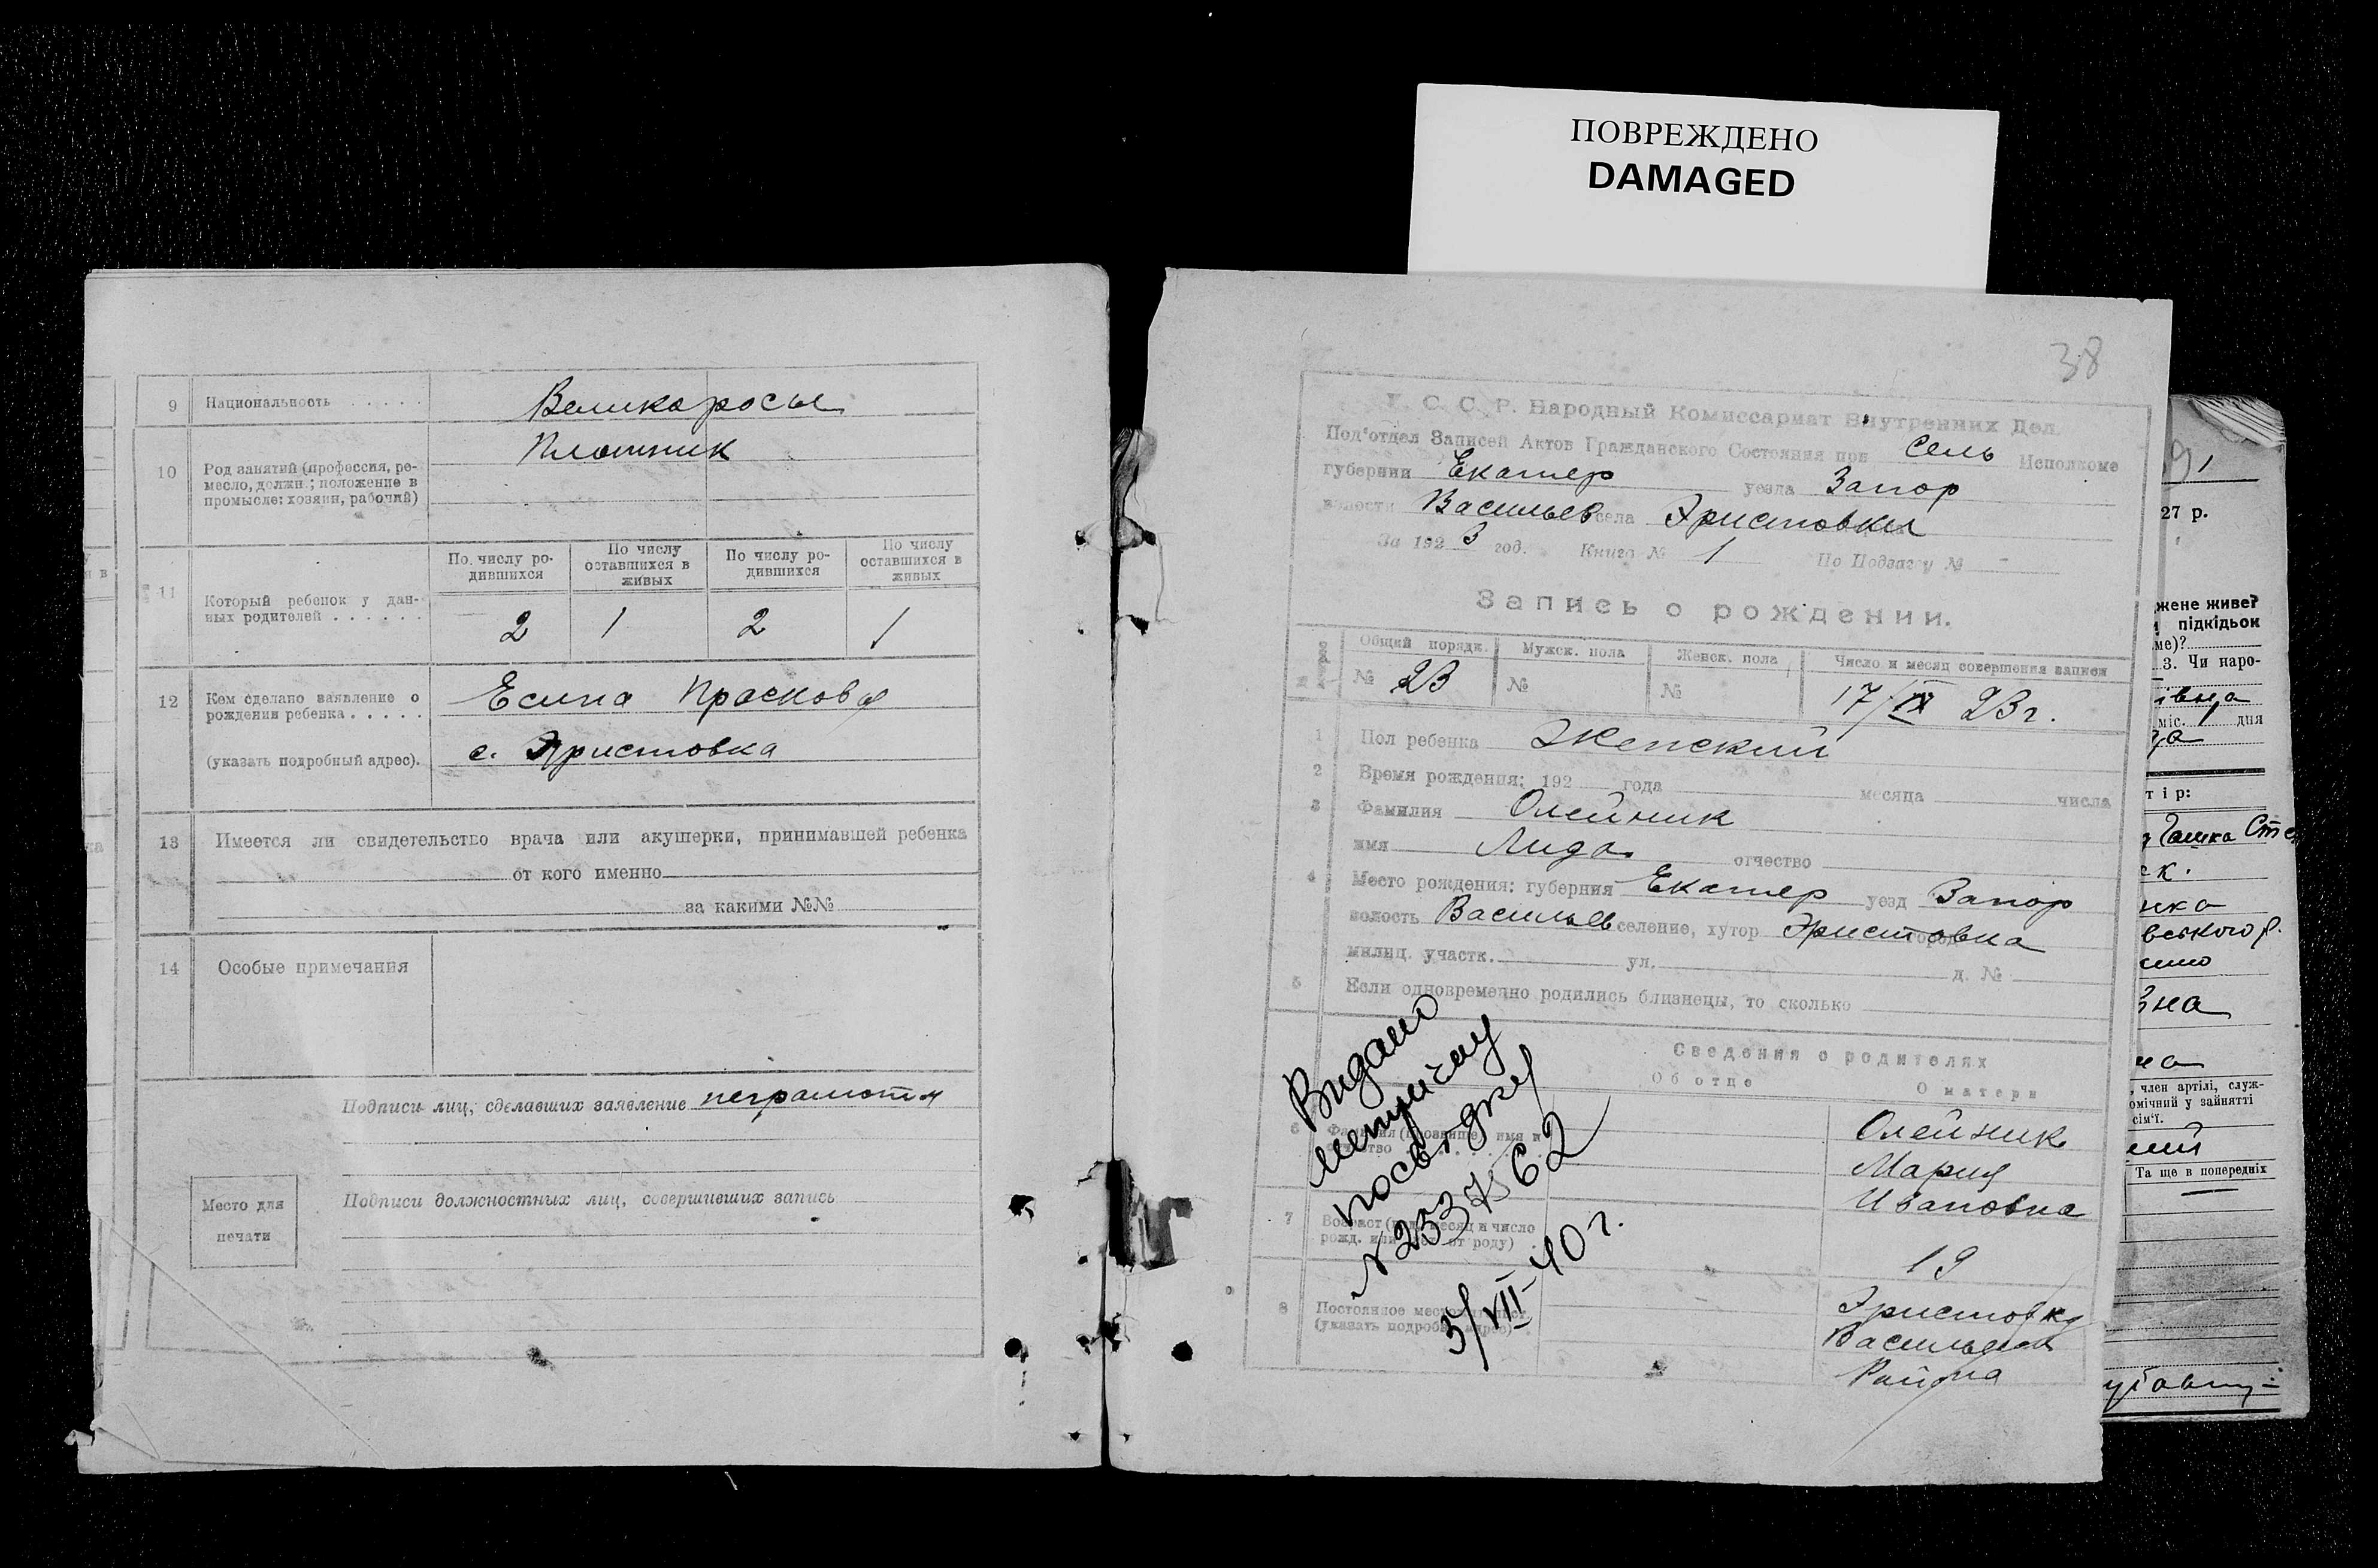 ПОВРЕЖДЕНО
DAMAGED
9 Национальность . . . . . Великоросы
10 Род занятий (профессия, ре-
месло, должн.; положение в
промысле: хозяин, рабочий) Плотник
11 Который ребенок у дан-
ных родителей . . . . . .
По числу ро-
дившихся
По числу
оставшихся в
живых
По числу ро-
дившихся
По числу
оставшихся в
живых
2 1 2 1
12 Кем сделано заявление о
рождении ребенка . . . . . Есина Прасковя
(указать подробный адрес). с. Эристовка
13 Имеется ли свидетельство врача или акушерки, принимавшей ребенка
от кого именно
за какими №№
14 Особые примечания
Подписи лиц, сделавших заявление неграмотн
Место для
печати
Подписи должностных лиц, совершивших запись
38
У. С. С. Р. Народный Комиссариат Внутренних Дел.
Под'отдел Записей Актов Гражданского Состояния при Сель Исполкоме
губернии Екатер уезда Запор
волости Васильев села Эристовки
За 1923 год. Книга № 1 По Подзагсу № -
Запись о рождении.
Общий порядк. Мужск. пола Женск. пола Число и месяц совершения записи
№ 23 № № 17/IX 23 г.
1 Пол ребенка Женский
2 Время рождения: 192 года месяца числа
3 Фамилия Олейник
имя Лида отчество
4 Место рождения: губерния Екатер уезд Запор
волость Васильев селение, хутор Эристовка
милиц. участк. ул. д. №
5 Если одновременно родились близнецы, то сколько
Сведения о родителях
Об отце О матери
6 Фамилия (прозвище), имя и
отчество Олейник
Мария
Ивановна
7 Возраст (год, месяц и число
рожд. или лет от роду) 19
8 Постоянное местожительст.
(указать подробн. адрес) Эристовка
Района
Видано
метричну
посвідку
№ 237562
3/VII-40 г.
27 р.
жене живе?
підкідьок
ме)?
3. Чи наро-
івна
міс. 1 дня
т і р:
ск.
вського р.
вна
на
член артілі, служ-
омічний у зайнятті
сім'ї.
Та ще в попередніх